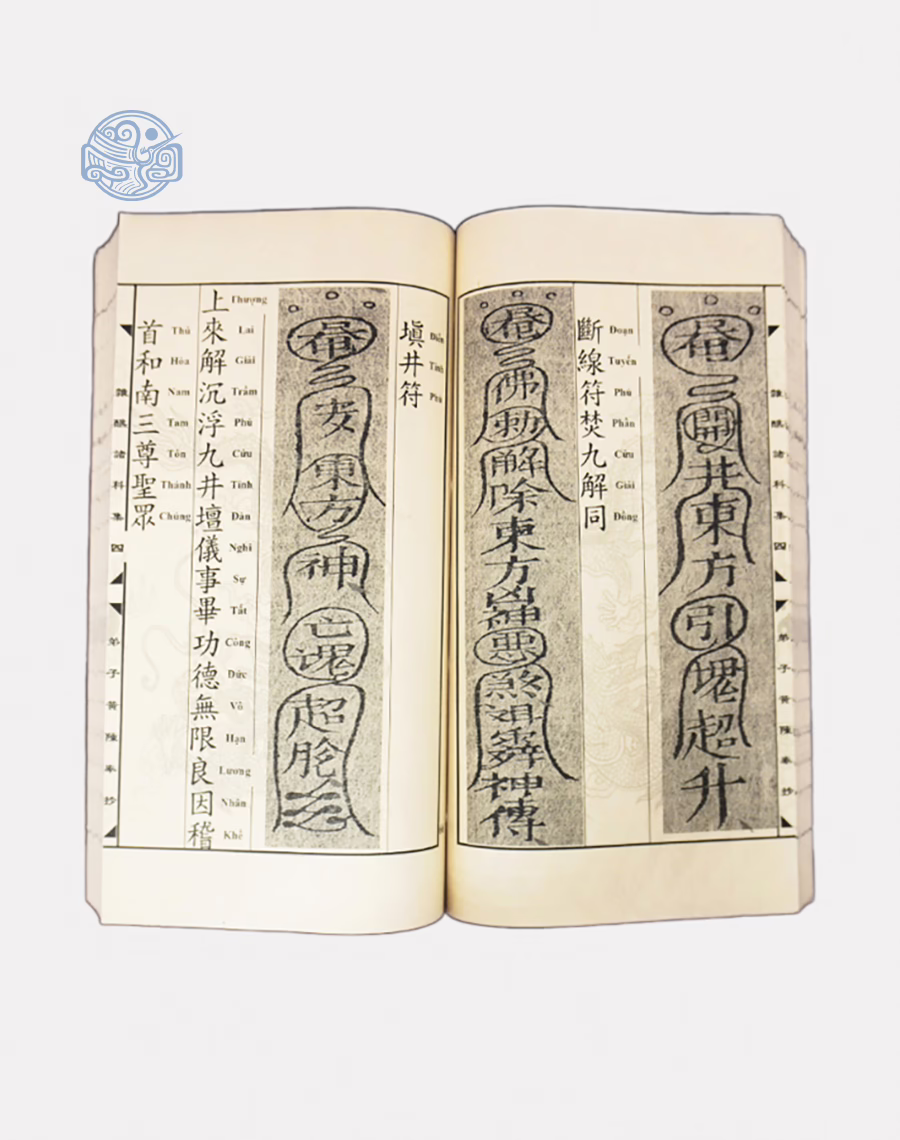 開井東方引魂超升
斷線符焚九解同
Đoạn Tuyến Phù Phần Cửu Giải Đồng
佛勅解除東方凶神惡煞
神傳
塡井符
Điền Tỉnh Phù
安東方神亡魂超脫
上來解沉浮九井壇儀事畢功德無限良因稽
Thượng Lai Giải Trầm Phù Cửu Tỉnh Đàn Nghi Sự Tất Công Đức Vô Hạn Lương Nhân Khể
首和南三尊聖眾
Thủ Hòa Nam Tam Tôn Thánh Chúng
諸科集四
弟子
奉抄